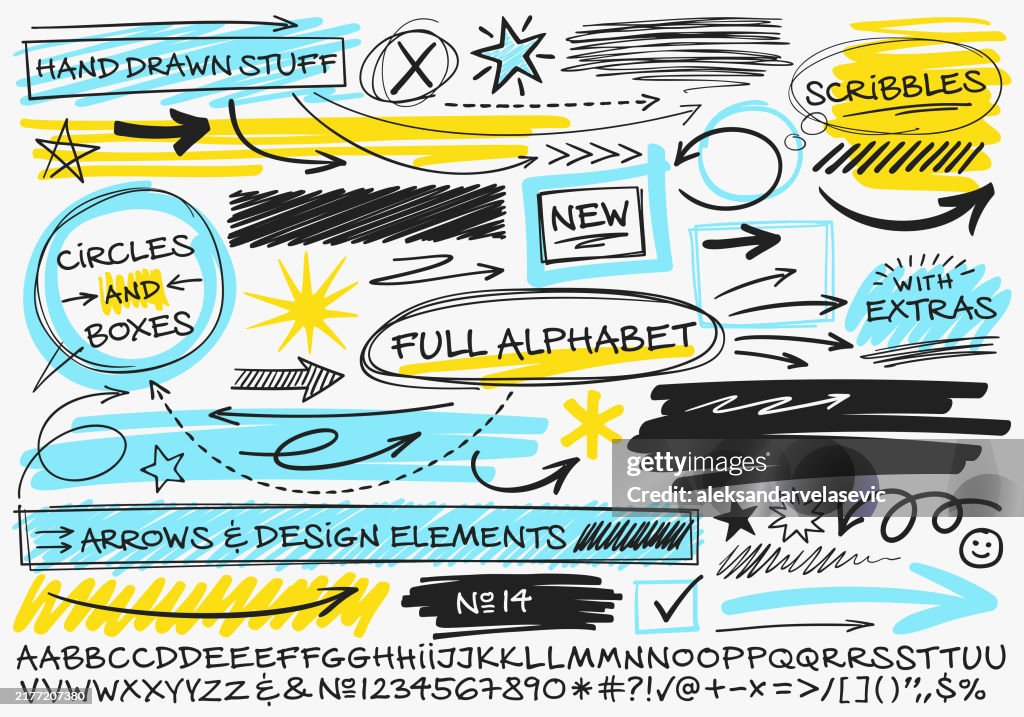 HAND DRAWN STUFF
X
SCRiBBLES
NEW
CiRCLES
AND
BOXES
WITH
EXTRAS
FULL ALPHABET
gettyimages
Credit: aleksandarvelasevic
ARROWS & DESIGN ELEMENTS
№ 14
AABBCCDDEEEFFGGHHiiJJKKLLMMNNOOPPQQRRSSTTUU
VVWWXXYYZZ & & №1234567890*#?!✓@+-×=>/[]()”,,$%
2177207380